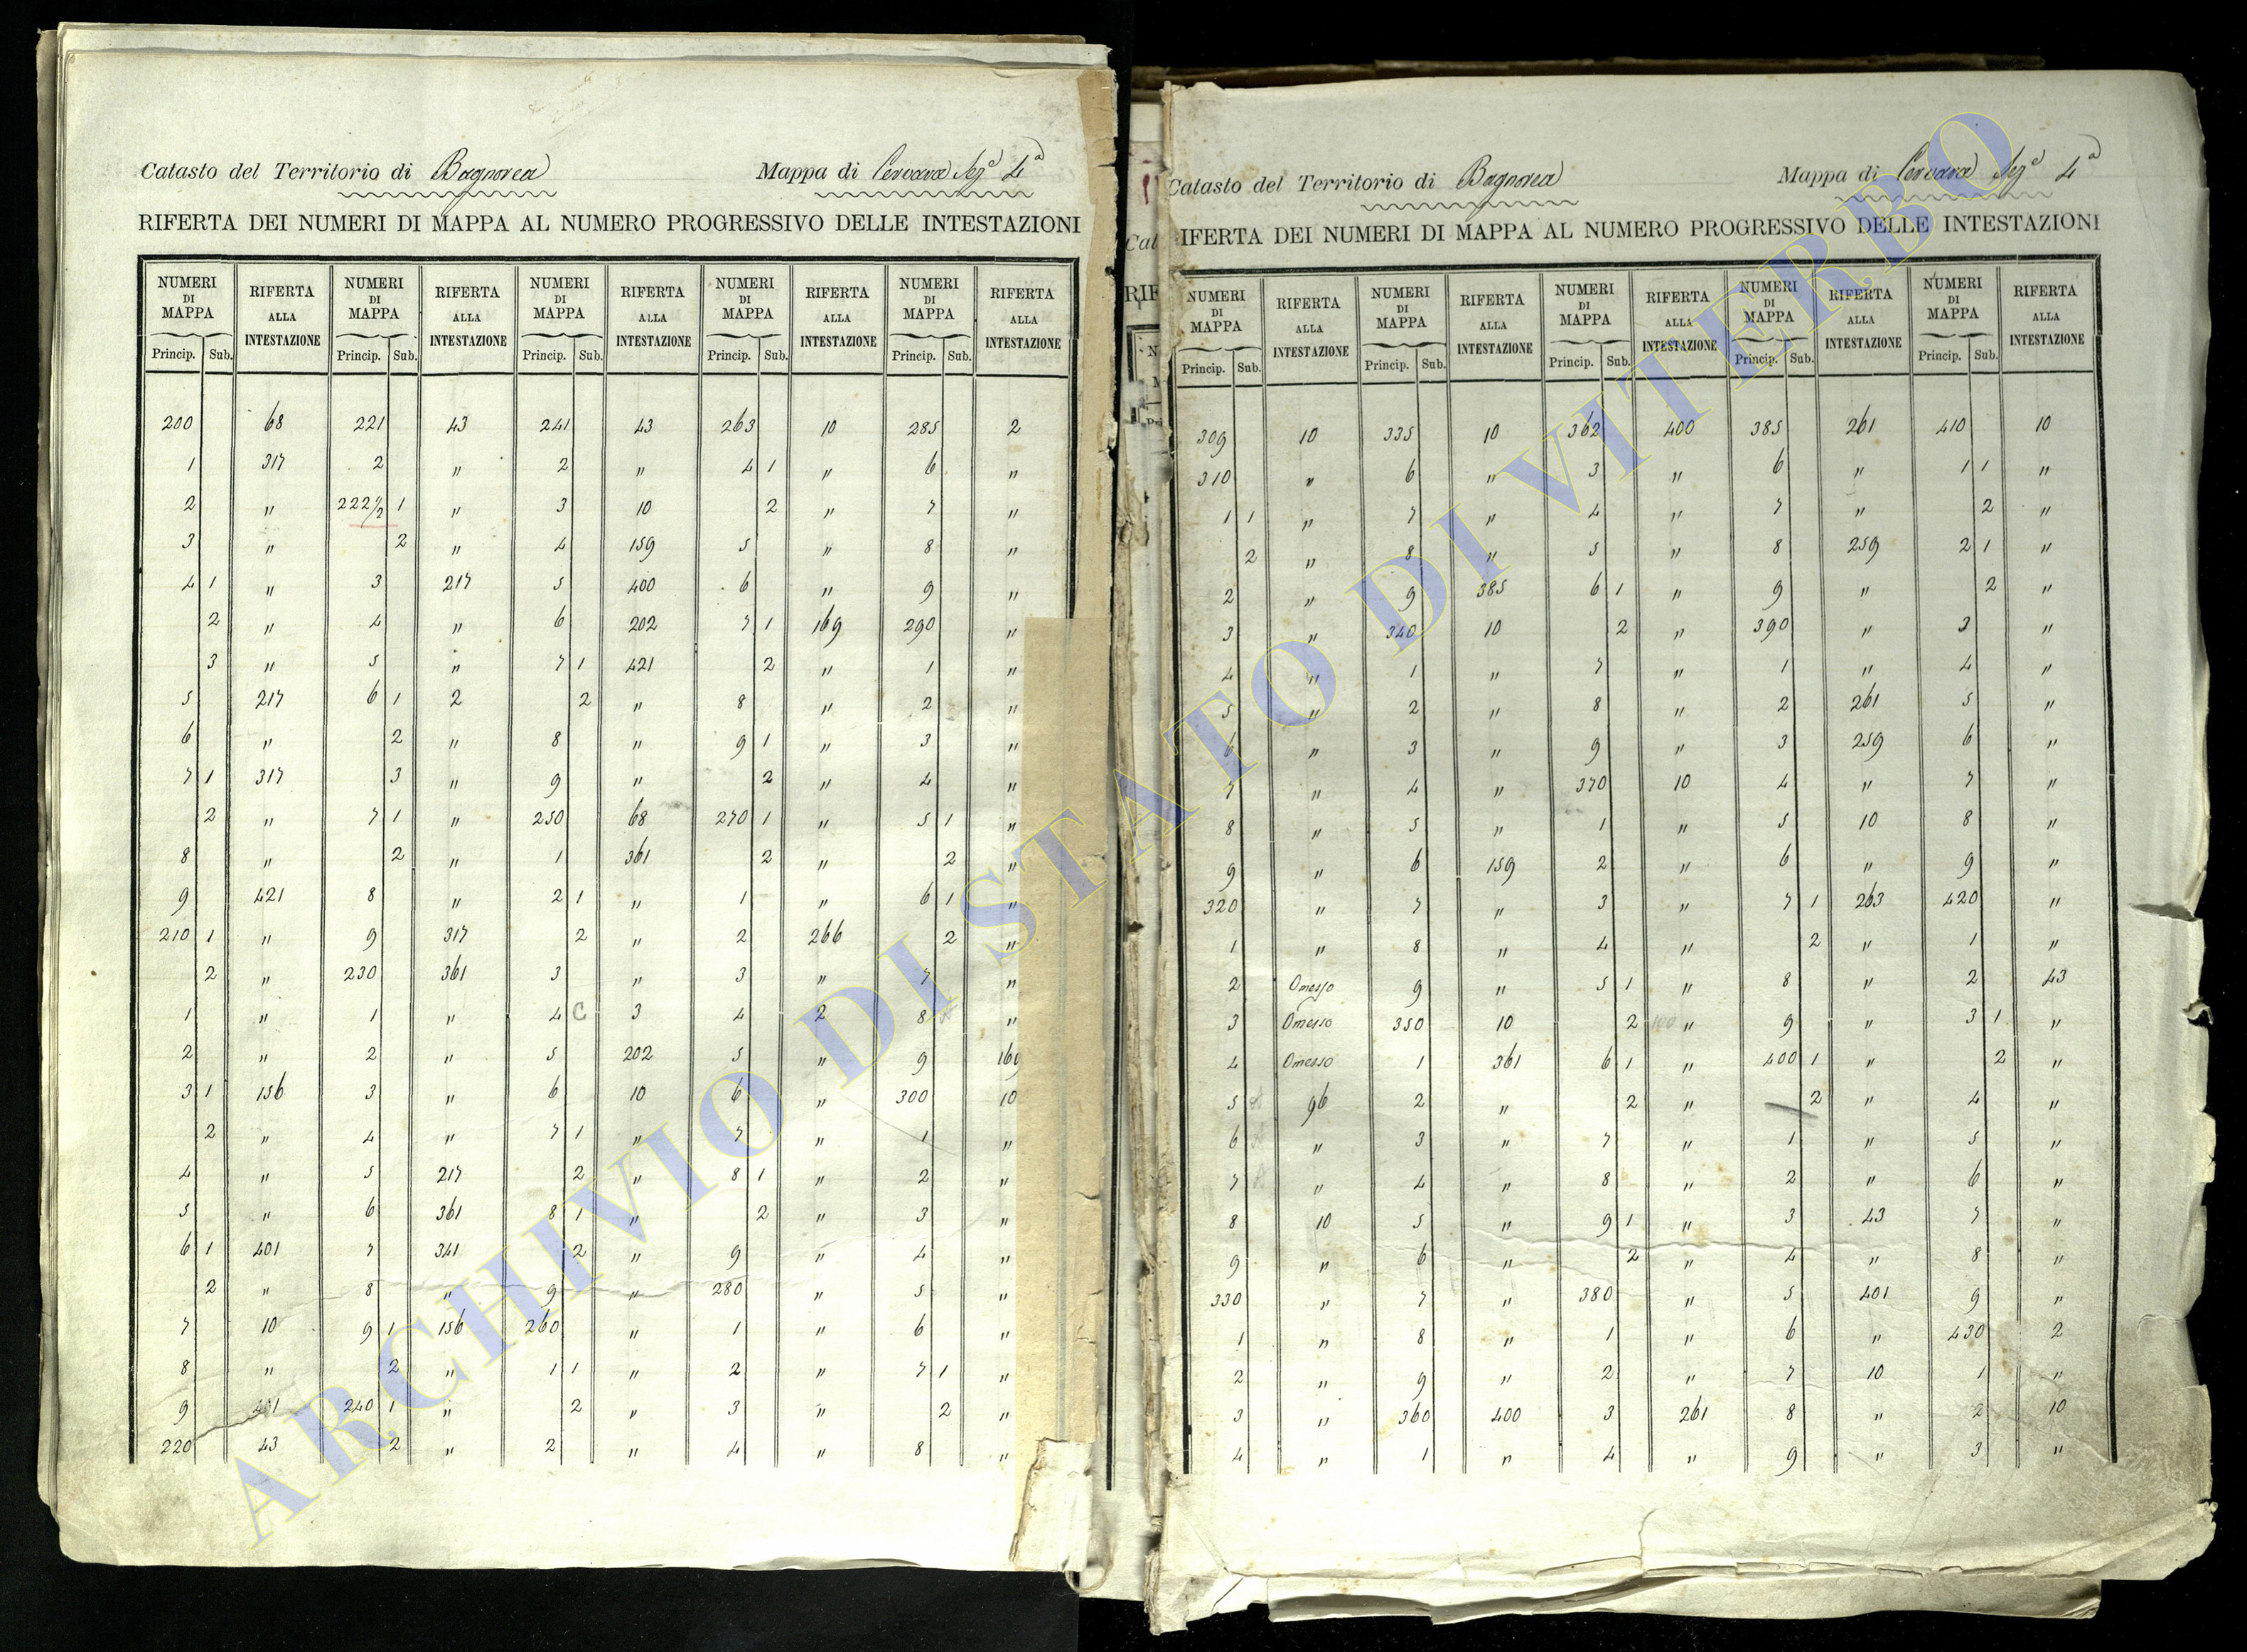 Catasto del Territorio di Bagnorea Mappa di Cervara Sez.e 4a
RIFERTA DEI NUMERI DI MAPPA AL NUMERO PROGRESSIVO DELLE INTESTAZIONI
NUMERI DI MAPPA RIFERTA ALLA INTESTAZIONE NUMERI DI MAPPA RIFERTA ALLA INTESTAZIONE NUMERI DI MAPPA RIFERTA ALLA INTESTAZIONE NUMERI DI MAPPA RIFERTA ALLA INTESTAZIONE NUMERI DI MAPPA RIFERTA ALLA INTESTAZIONE
Princip. Sub. Princip. Sub. Princip. Sub. Princip. Sub. Princip. Sub.
200 68 221 43 241 43 263 10 285 2
1 317 2 " 2 " 4 1 " 6 "
2 " 222 1/2 1 " 3 10 2 " 7 "
3 " 2 " 4 159 5 " 8 "
4 1 " 3 217 5 400 6 " 9 "
2 " 4 " 6 202 7 1 169 290 "
3 " 5 " 7 1 421 2 " 1 "
5 217 6 1 2 2 " 8 " 2 "
6 " 2 " 8 " 9 1 " 3 "
7 1 317 3 " 9 " 2 " 4 "
2 " 7 1 " 250 68 270 1 " 5 1 "
8 " 2 " 1 361 2 " 2 "
9 421 8 " 2 1 " 1 " 6 1 "
210 1 " 9 317 2 " 2 266 2 "
2 " 230 361 3 " 3 " 7 "
1 " 1 " 4 C 3 4 2 8 "
2 " 2 " 5 202 5 " 9 169
3 1 156 3 " 6 10 6 " 300 10
2 " 4 " 7 1 " 7 " 1 "
4 " 5 217 2 " 8 1 " 2 "
5 " 6 361 8 1 " 2 " 3 "
6 1 401 7 341 2 " 9 " 4 "
2 " 8 " 9 " 280 " 5 "
7 10 9 1 156 260 " 1 " 6 "
8 " 2 " 1 1 " 2 " 7 1 "
9 401 240 1 " 2 " 3 " 2 "
220 43 2 " 2 " 4 " 8 "
Catasto del Territorio di Bagnorea Mappa di Cervara Sez.e 4a
IFERTA DEI NUMERI DI MAPPA AL NUMERO PROGRESSIVO DELLE INTESTAZIONI
NUMERI DI MAPPA RIFERTA ALLA INTESTAZIONE NUMERI DI MAPPA RIFERTA ALLA INTESTAZIONE NUMERI DI MAPPA RIFERTA ALLA INTESTAZIONE NUMERI DI MAPPA RIFERTA ALLA INTESTAZIONE NUMERI DI MAPPA RIFERTA ALLA INTESTAZIONE
Princip. Sub. Princip. Sub. Princip. Sub. Princip. Sub. Princip. Sub.
309 10 335 10 362 400 385 261 410 10
310 " 6 " 3 " 6 " 1 1 "
1 1 " 7 " 4 " 7 " 2 "
2 " 8 " 5 " 8 259 2 1 "
2 " 9 385 6 1 " 9 " 2 "
3 " 340 10 2 " 390 " 3 "
4 " 1 " 7 " 1 " 4 "
5 " 2 " 8 " 2 261 5 "
6 " 3 " 9 " 3 259 6 "
7 " 4 " 370 10 4 " 7 "
8 " 5 " 1 " 5 10 8 "
9 " 6 159 2 " 6 " 9 "
320 " 7 " 3 " 7 1 263 420 "
1 " 8 " 4 " 2 " 1 "
2 Omesso 9 " 5 1 " 8 " 2 43
3 Omesso 350 10 2 " 9 " 3 1 "
4 Omesso 1 361 6 1 " 400 1 " 2 "
5 96 2 " 2 " 2 " 4 "
6 " 3 " 7 " 1 " 5 "
7 " 4 " 8 " 2 " 6 "
8 10 5 " 9 1 " 3 43 7 "
9 " 6 " 2 " 4 " 8 "
330 " 7 " 380 " 5 401 9 "
1 " 8 " 1 " 6 " 430 2
2 " 9 " 2 " 7 10 1 "
3 " 360 400 3 261 8 " 2 10
4 " 1 " 4 " 9 " 3 "
ARCHIVIO DI STATO DI VITERBO